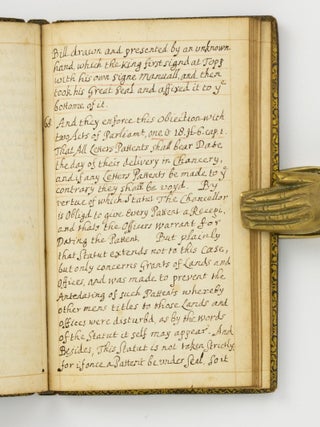 Bill drawn and presented by an unknown
hand, which the King first signd at Topp
with his own signe Manuall, and then
took his Great Seal and affixed it to yᵉ
bottome of it.
And they enforce this Obiection with
two Acts of Parleamᵗ, one 18. H. 6. cap. 1.
That All Letters Pattents shall bear Date
the day of their delivery in Chancery,
and if any Letters Pattents be made to yᵉ
contrary they shall be voyd. By
vertue of which Statut The Chancellor
is Obligd to give every Patent a Receipt,
and thats the Officers warrant for
Dating the Pattent. But placenly
that Statut extends not to this Case,
but only concerns Grants of Lands and
Offices, and was made to prevent the
Antedating of such Pattents whereby
other mens titles to those Lands and
Offices were disturbd, as by the words
of the Statut it self may appear. And
Besides, This Statut is not taken Strictly,
for if once a Pattent be under Seal, so it